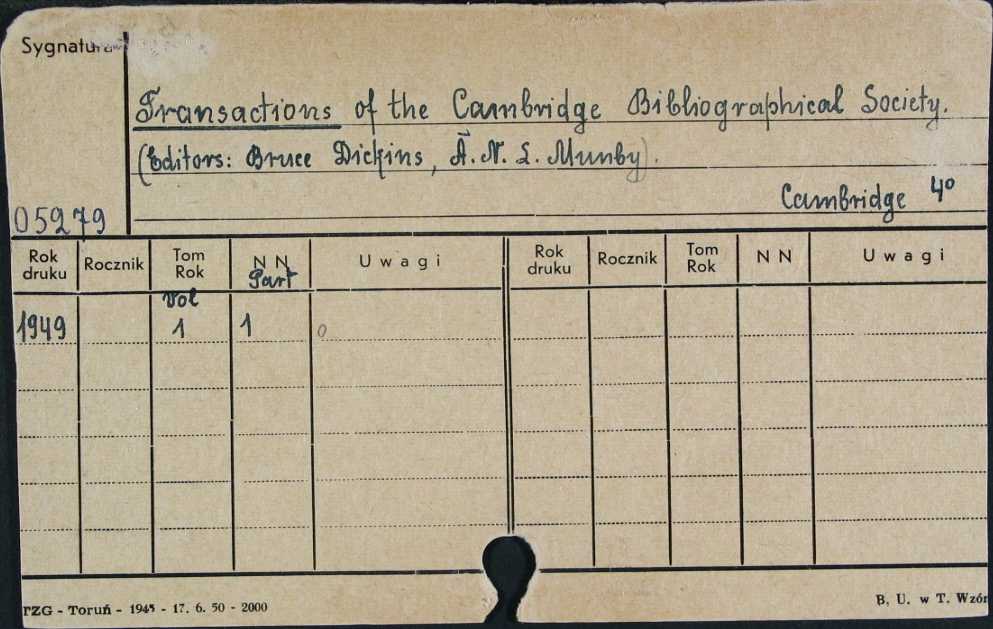 Sygnatura
Transactions of the Cambridge Bibliographical Society.
(Editors: Bruce Dickins, A. N. L. Munby).
Cambridge 4°
05279
Rok druku Rocznik Tom Rok N N Uwagi Rok druku Rocznik Tom Rok N N Uwagi
Vol Part
1949 1 1 0
TZG - Toruń - 1945 - 17. 6. 50 - 2000
B. U. w T. Wzór